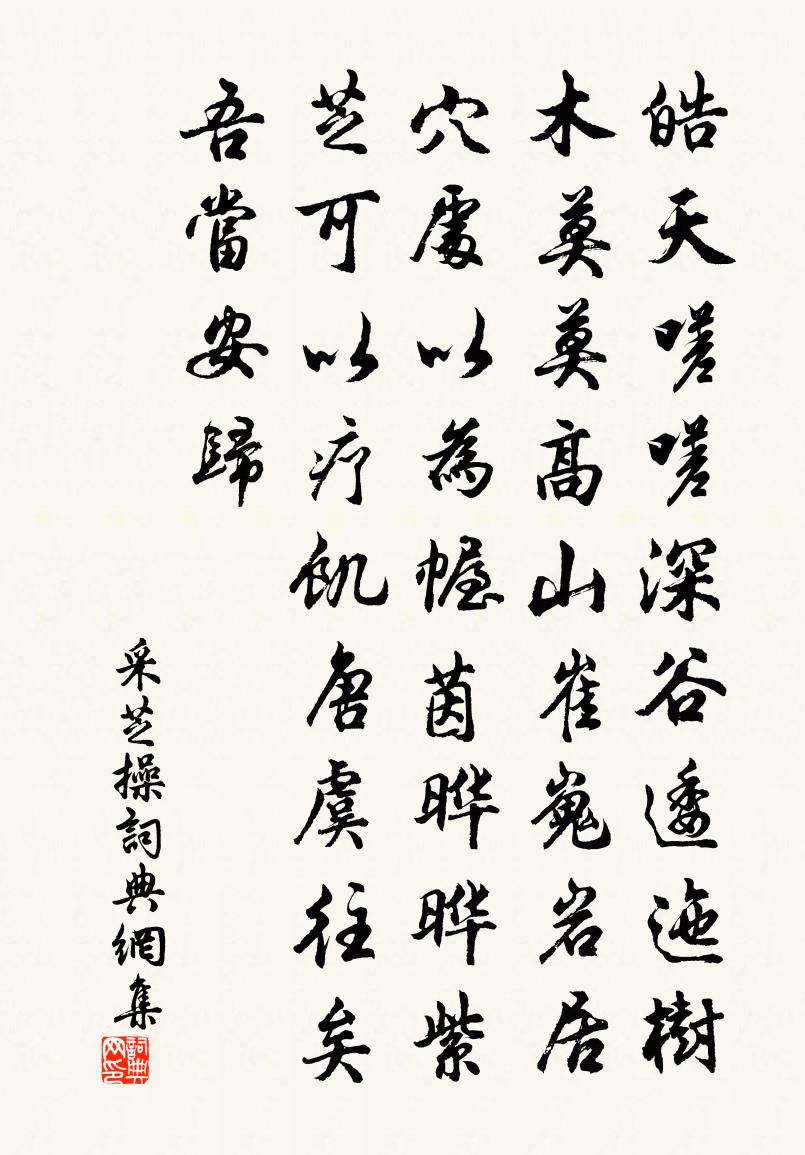 皓天嗟嗟深谷逶迤樹
木莫莫高山崔嵬岩居
穴處以為幄茵晔晔紫
芝可以疗飢唐虞往矣
吾當安歸
采芝操詞典網集
詞典网印